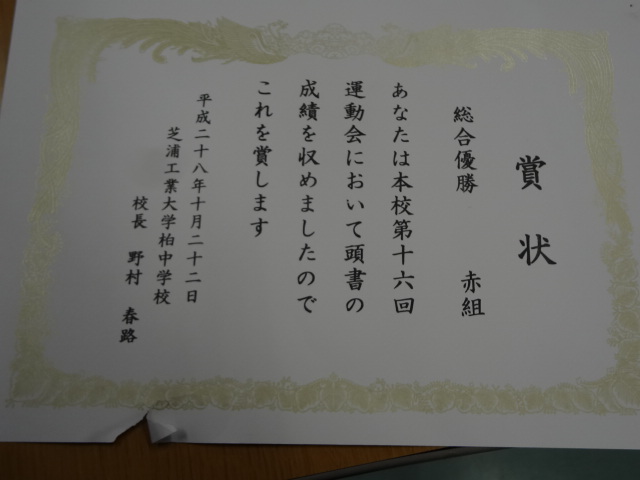 賞状
総合優勝 赤組
あなたは本校第十六回
運動会において頭書の
成績を収めましたので
これを賞します
平成二十八年十月二十二日
芝浦工業大学柏中学校
校長 野村 春路